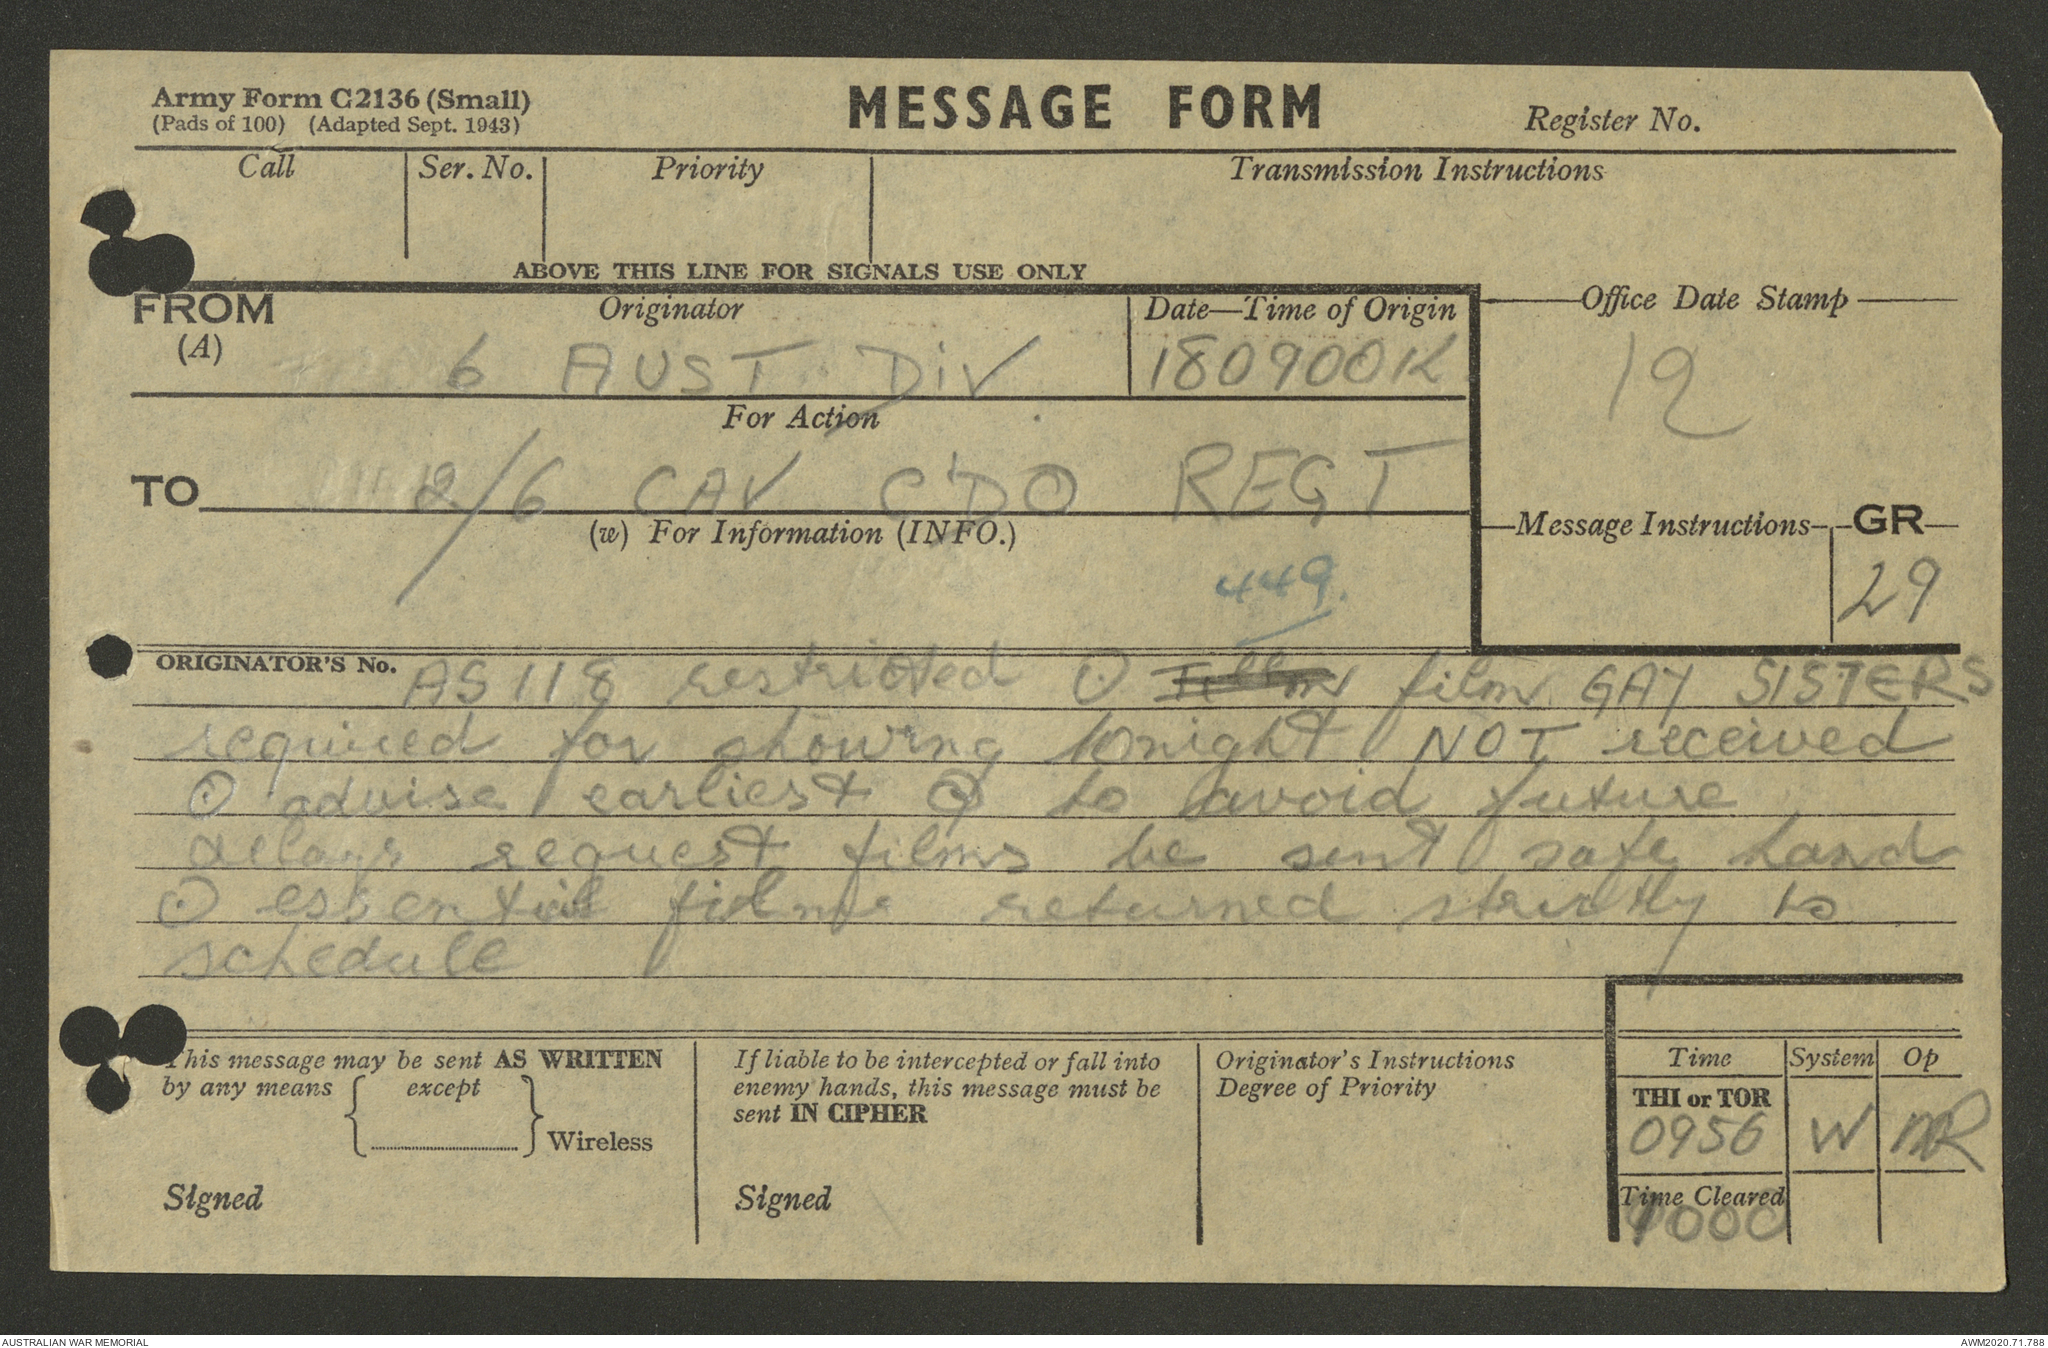 Army Form C2136 (Small)
(Pads of 100) (Adapted Sept. 1943)
MESSAGE FORM
Register No.
Call
Ser. No.
Priority
Transmission Instructions
ABOVE THIS LINE FOR SIGNALS USE ONLY
FROM
(A)
Originator
6 AUST DIV
Date—Time of Origin
180900K
Office Date Stamp
For Action
TO
2/6 CAV CDO REGT
(w) For Information (INFO.)
449.
Message Instructions
GR
29
ORIGINATOR'S No. AS 118 restricted ⊙ film GAY SISTERS
required for showing tonight NOT received
⊙ advise earliest ⊙ to avoid future
delays request films be sent safe hand
⊙ essential films returned strictly to
schedule
This message may be sent AS WRITTEN
by any means except
Wireless
Signed
If liable to be intercepted or fall into
enemy hands, this message must be
sent IN CIPHER
Signed
Originator's Instructions
Degree of Priority
Time System Op
THI or TOR
0956 W MR
Time Cleared
1000
AUSTRALIAN WAR MEMORIAL
AWM2020.71.788